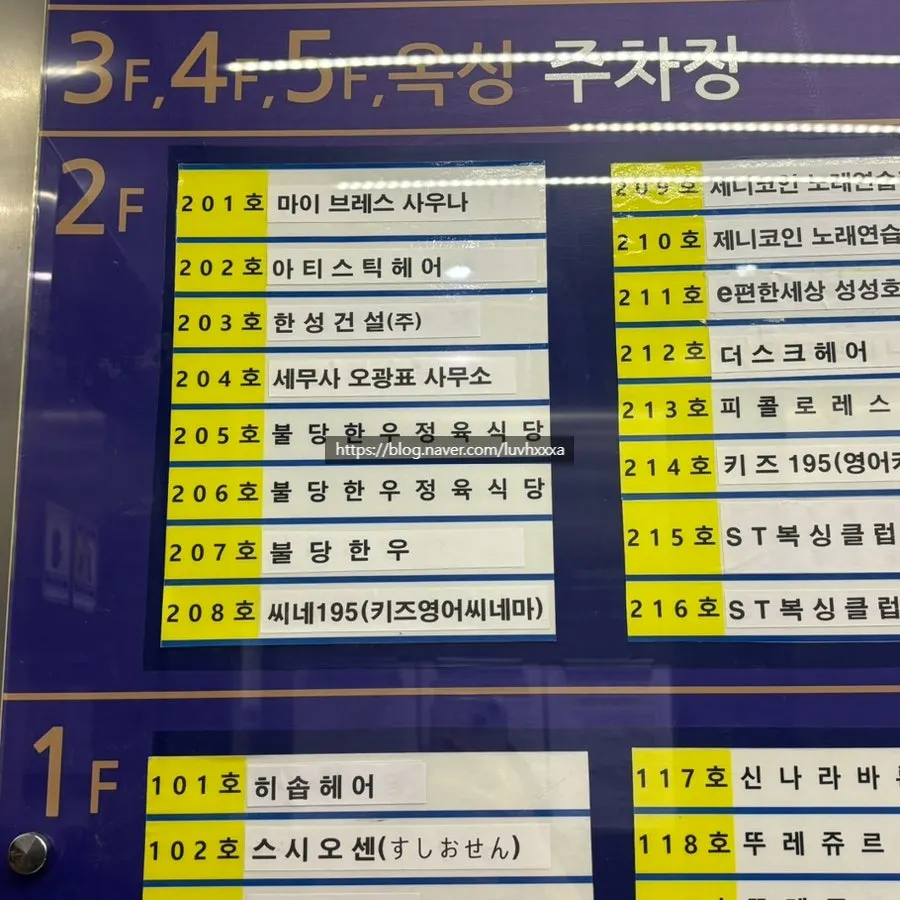 3F,4F,5F,옥상 주차장
2F
201호 마이 브레스 사우나
202호 아티스틱헤어
203호 한성건설(주)
204호 세무사 오광표 사무소
205호 불당한우정육식당
206호 불당한우정육식당
207호 불당한우
208호 씨네195(키즈영어씨네마)
209호 제니코인 노래연습
210호 제니코인 노래연습
211호 e편한세상 성성호
212호 더스크헤어
213호 피콜로레스
214호 키즈 195(영어키
215호 ST복싱클럽
216호 ST복싱클럽
https://blog.naver.com/luvhxxxa
1F
101호 히솝헤어
102호 스시오센(すしおせん)
117호 신나라바
118호 뚜레쥬르